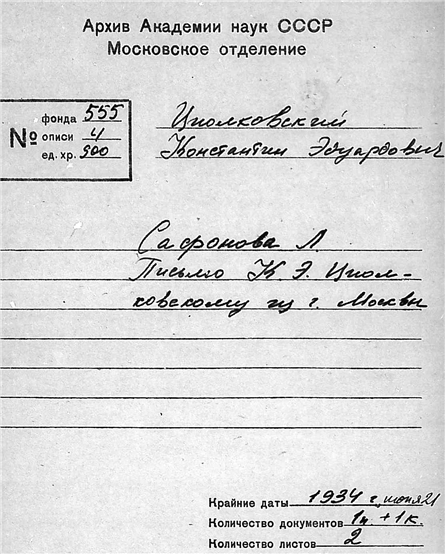 Архив Академии наук СССР
Московское отделение
№
фонда 555
описи 4
ед. хр. 900
Циолковский
Константин Эдуардович
Сафонова Л.
Письмо К. Э. Циол-
ковскому из г. Москвы
Крайние даты 1934 г, июня 21
Количество документов 1п. + 1к.
Количество листов 2